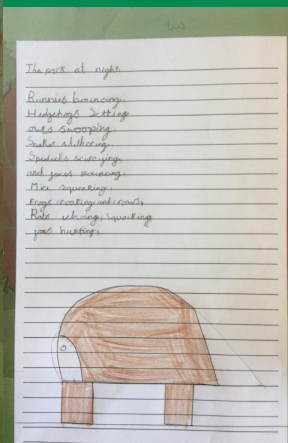 The park at night.
Bunnies bouncing,
Hedgehogs
owls swooping.
Snakes slithering.
scurrying,
and foxes pouncing.
Mice squeaking,
Frogs croaking and crows,
Rats squeaking
hunting,